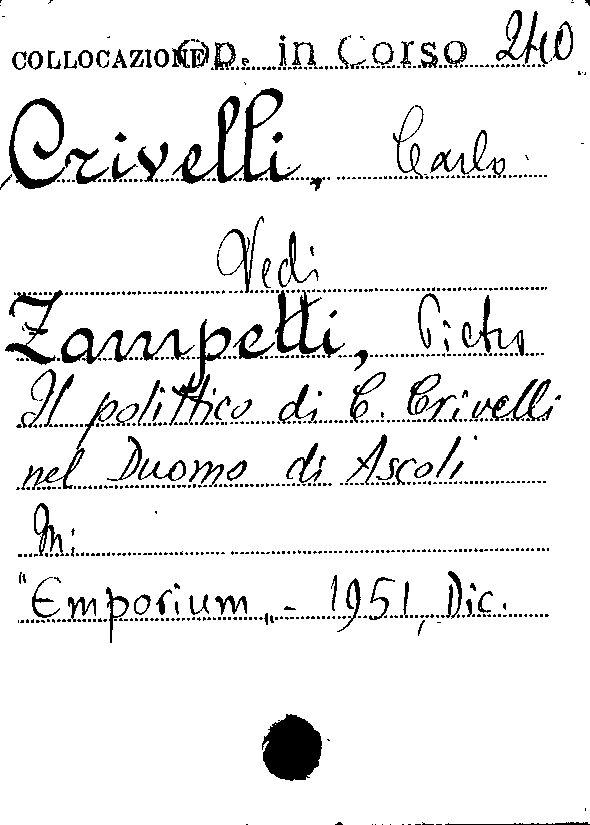 COLLOCAZIONE Op. in Corso 240
Crivelli, Carlo
Vedi
Zampetti, Pietro
Il polittico di C. Crivelli
nel Duomo di Ascoli
In:
"Emporium„ - 1951, Dic.